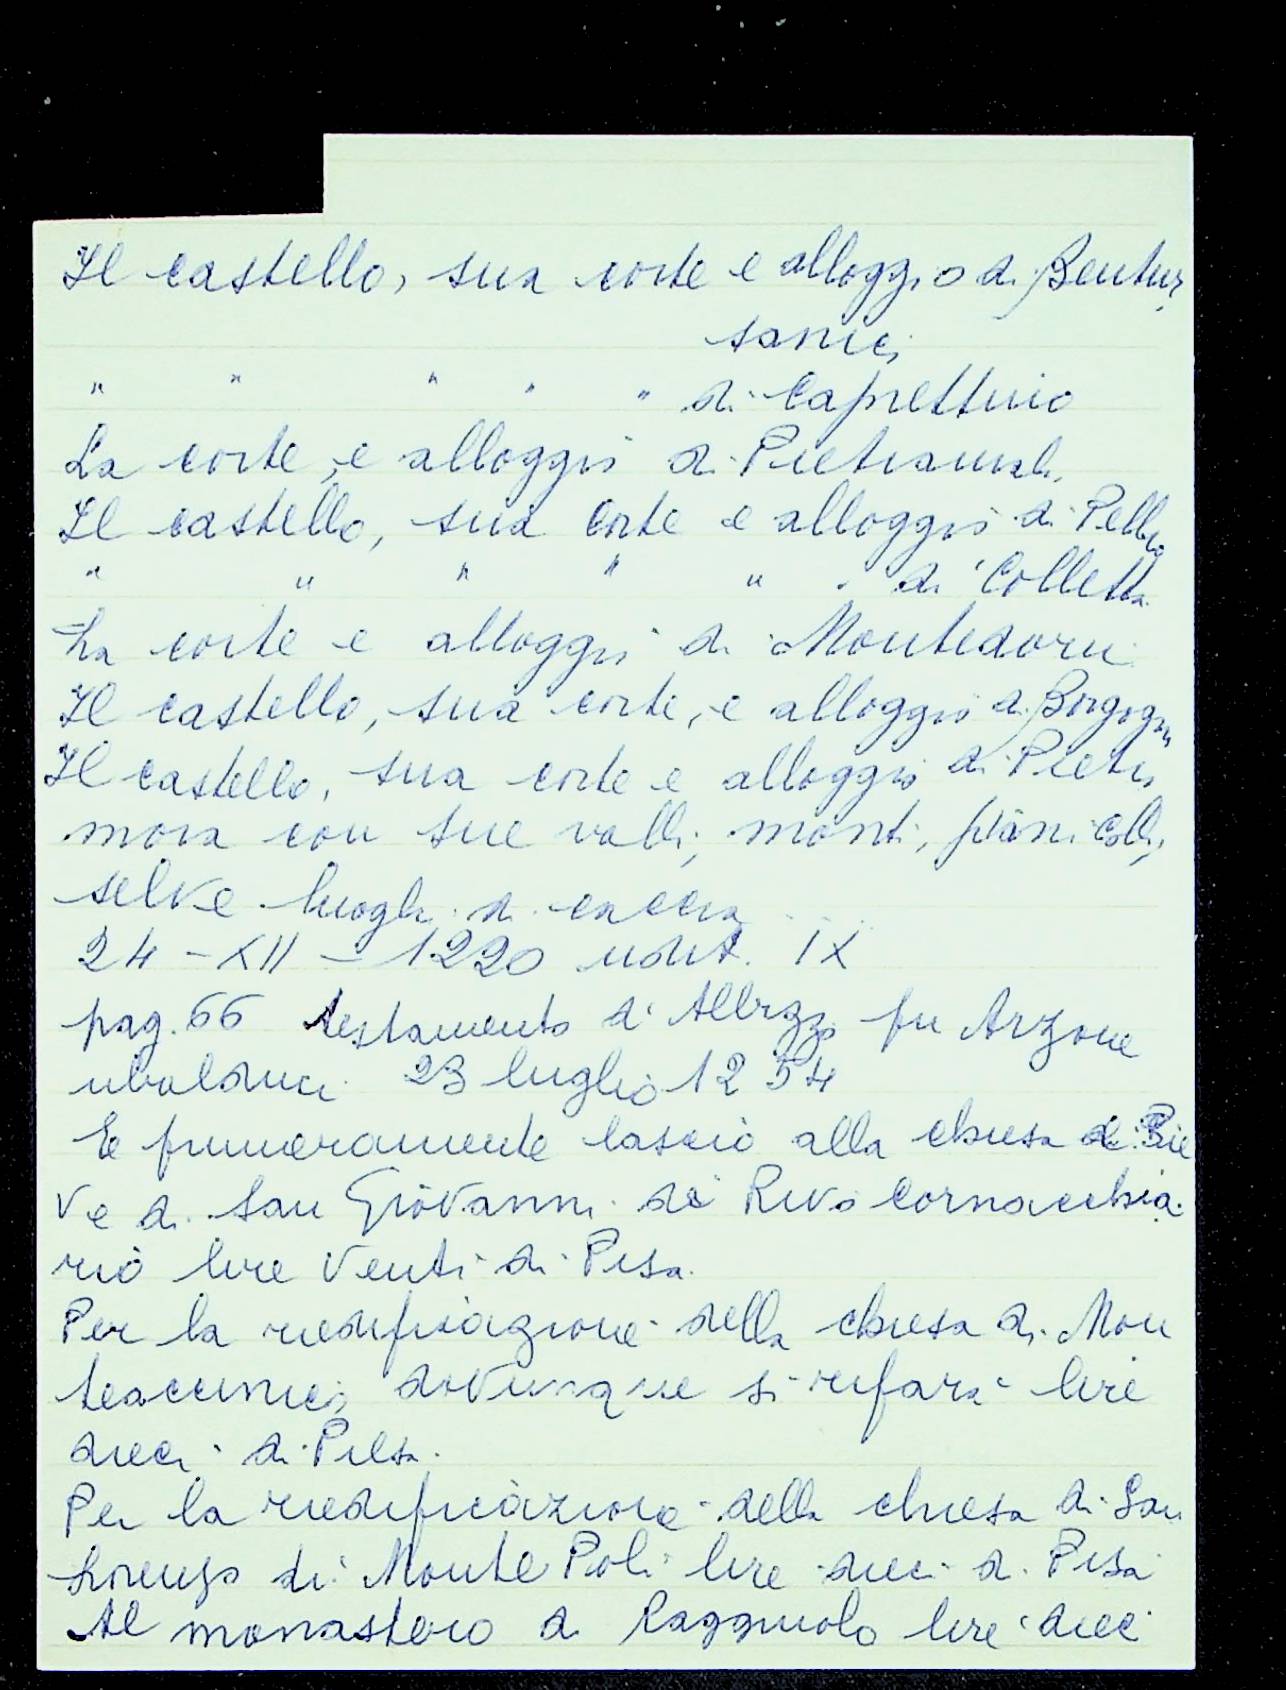 Il castello, sua corte e alloggio di Bentur
sanici
" " " " " di Caprettuio
La corte, e alloggio di Pietramala
Il castello, sua corte e alloggio di Pellio
" " " " " " di Colletta
La corte e alloggi di Montedori
Il castello, sua corte, e alloggio di Borgogni
Il castello, sua corte e alloggio di Pietra
mora con sue valli, monti, piani colli,
selve luoghi di caccia
24-XII-1220 indit. IX
pag. 66 testamento di Albizzo fu Arzone
ubaldini 23 luglio 1254
E primeramente lascio alla chiesa di Pie
ve di San Giovanni di Rivo Cornacchia
rio lire venti di Pisa.
Per la riedificazione della chiesa di Mon
teaccinici dovunque si rifarà lire
dieci di Pisa.
Per la riedificazione della chiesa di San
Lorenzo di Monte Poli lire dieci di Pisa
Al monastero di Raggiuolo lire dieci